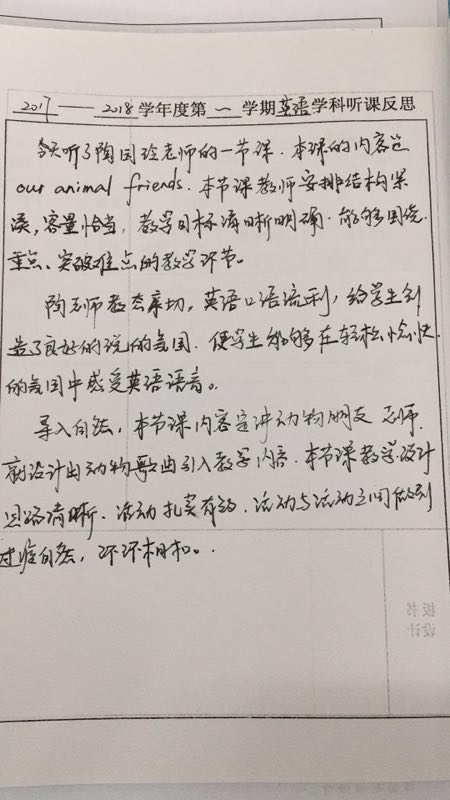 2017——2018学年度第一学期英语学科听课反思
今天听了陶国玲老师的一节课.本课的内容是
our animal friends.本节课教师安排结构紧
凑,容量恰当,教学目标清晰明确.能够围绕
重点、突破难点的教学环节。
陶老师教态亲切,英语口语流利,给学生创
造了良好的说的氛围.使学生能够在轻松愉快
的氛围中感受英语语音。
导入自然,本节课内容是讲动物朋友 老师
就设计由动物歌曲引入教学内容.本节课教学设计
思路清晰.活动扎实有效.活动与活动之间做到
过渡自然,环环相扣。
板书
设计